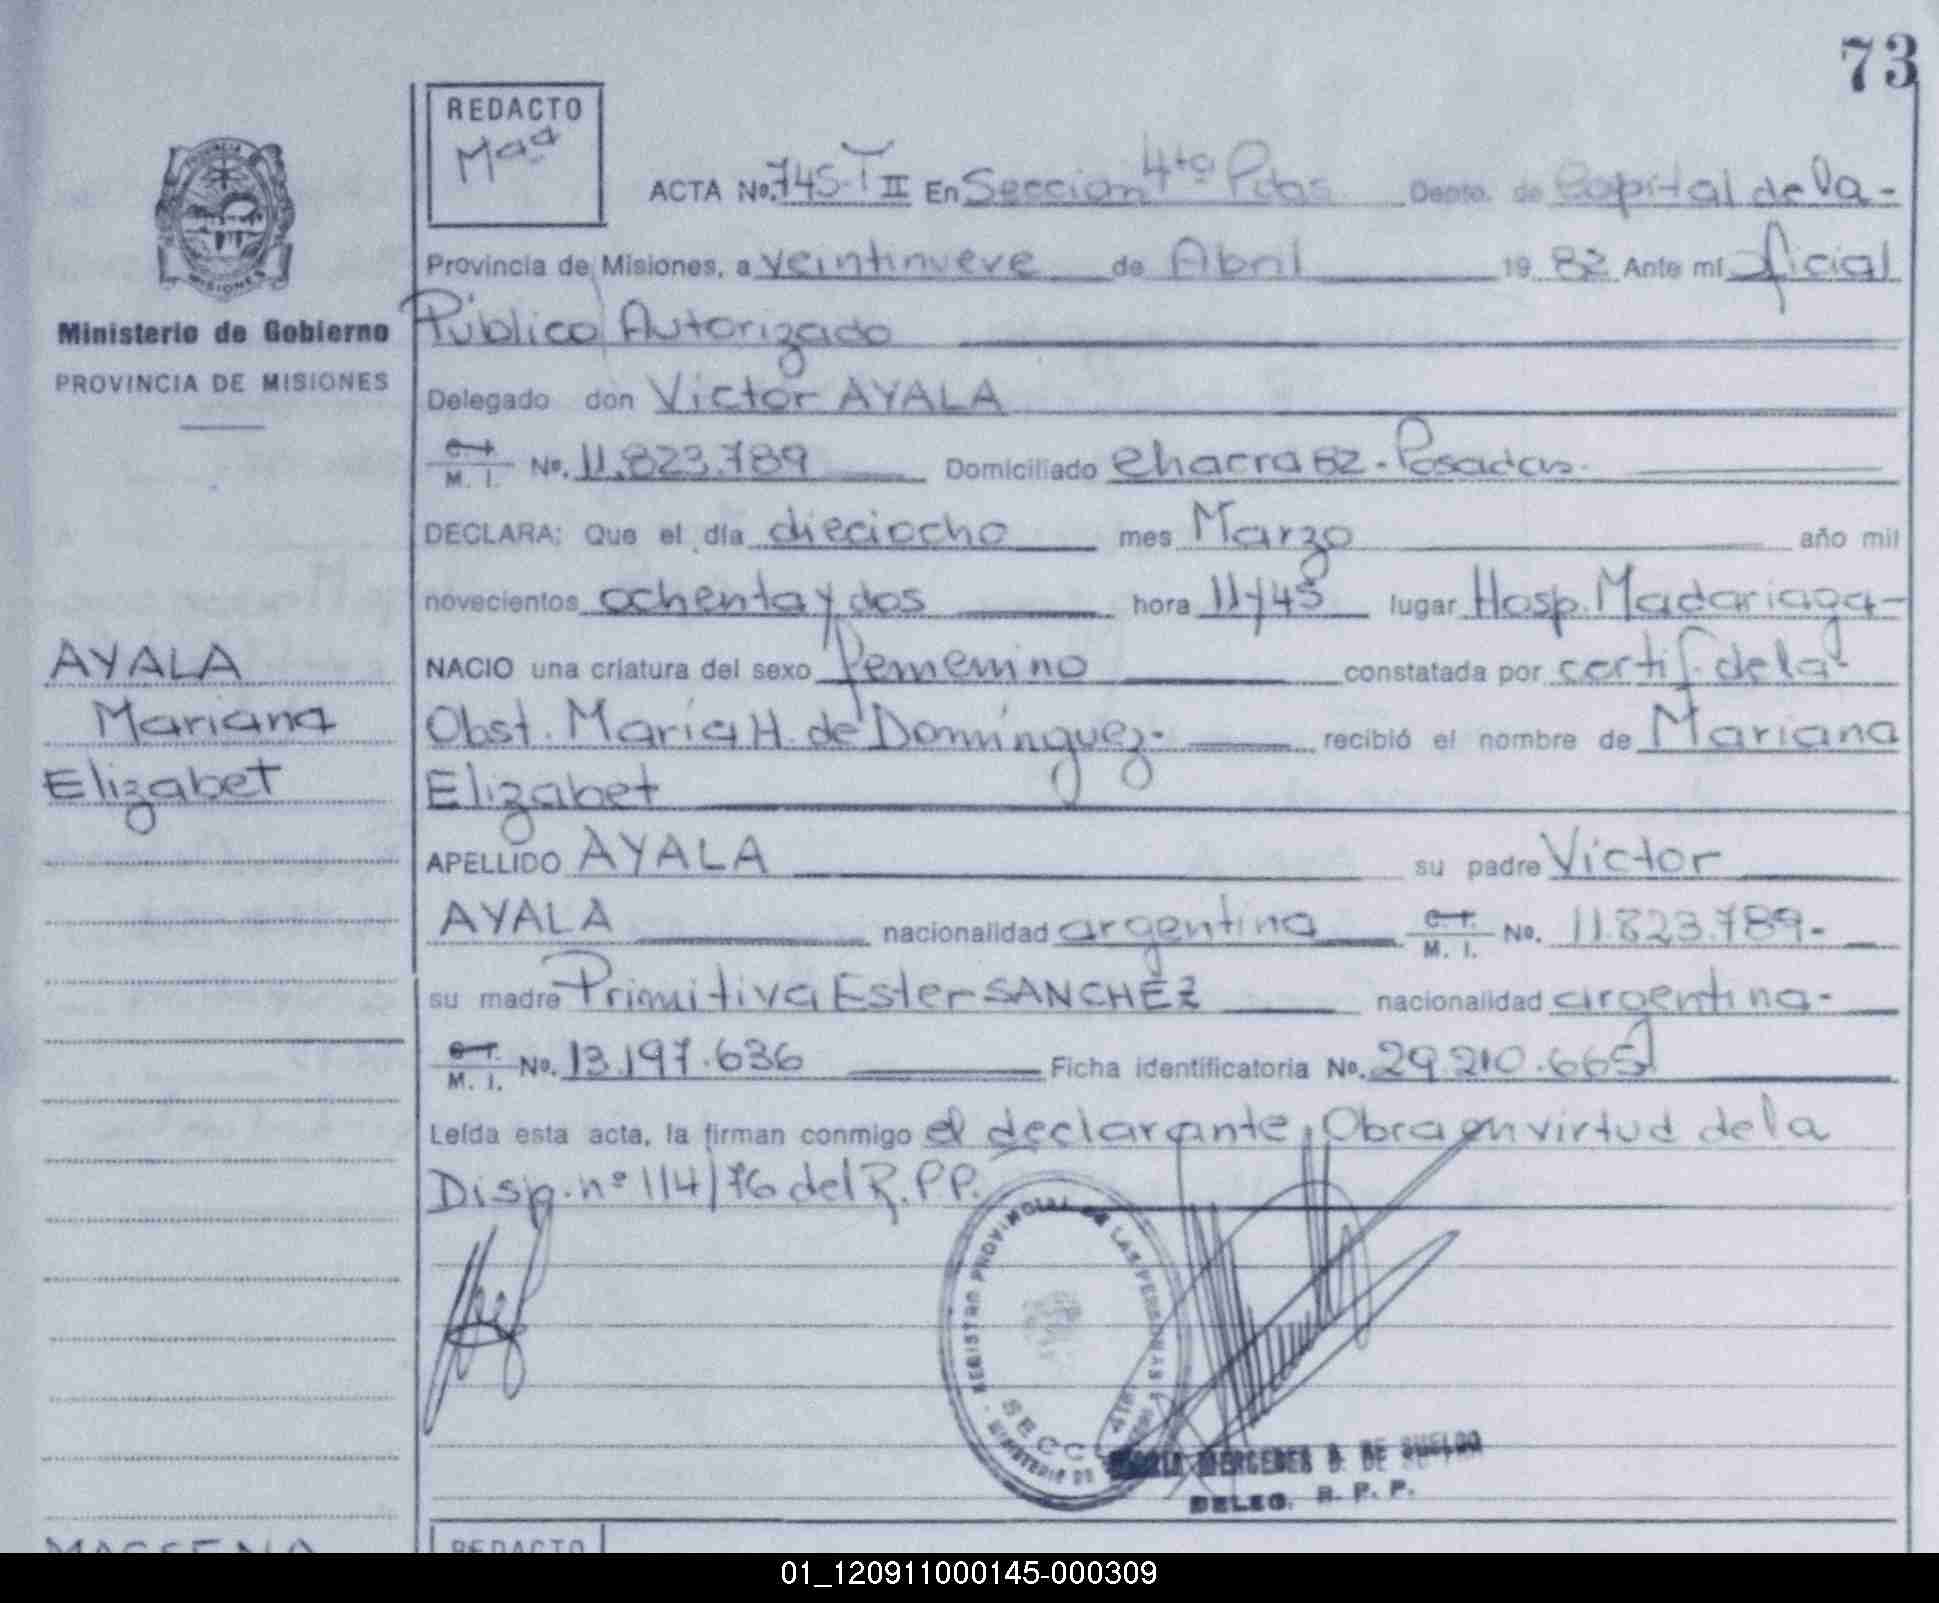 73
REDACTO
Maa
ACTA No. 745-T II En Sección 4ta Pdas. Depto. de Capital de la-
PROVINCIA
MISIONES
Provincia de Misiones, a veintinueve de Abril 19 82 Ante mí oficial
Ministerio de Gobierno
Público Autorizado
PROVINCIA DE MISIONES
Delegado don Victor AYALA
C. I. M. I. No. 11.823.789 Domiciliado Chacra 82 - Posadas.
DECLARA: Que el día dieciocho mes Marzo año mil
novecientos ochenta y dos hora 11y45 lugar Hosp. Madariaga-
AYALA
NACIO una criatura del sexo femenino constatada por certif. de la
Mariana
Obst. María H. de Domínguez. recibió el nombre de Mariana
Elizabet
Elizabet
APELLIDO AYALA su padre Victor
AYALA nacionalidad argentina C. I. M. I. No. 11.823.789-
su madre Primitiva Ester SANCHEZ nacionalidad argentina-
C. I. M. I. No. 13.197.636 Ficha identificatoria No. 29.210.665
Leída esta acta, la firman conmigo el declarante, Obra en virtud de la
Disp. nº 114/76 del R.P.P.
REGISTRO PROVINCIAL DE LAS PERSONAS
SECC. 4TA.
MINISTERIO DE
MARIA MERCEDES B. DE SUELDO
DELEG. R. P. P.
REDACTO
01_120911000145-000309